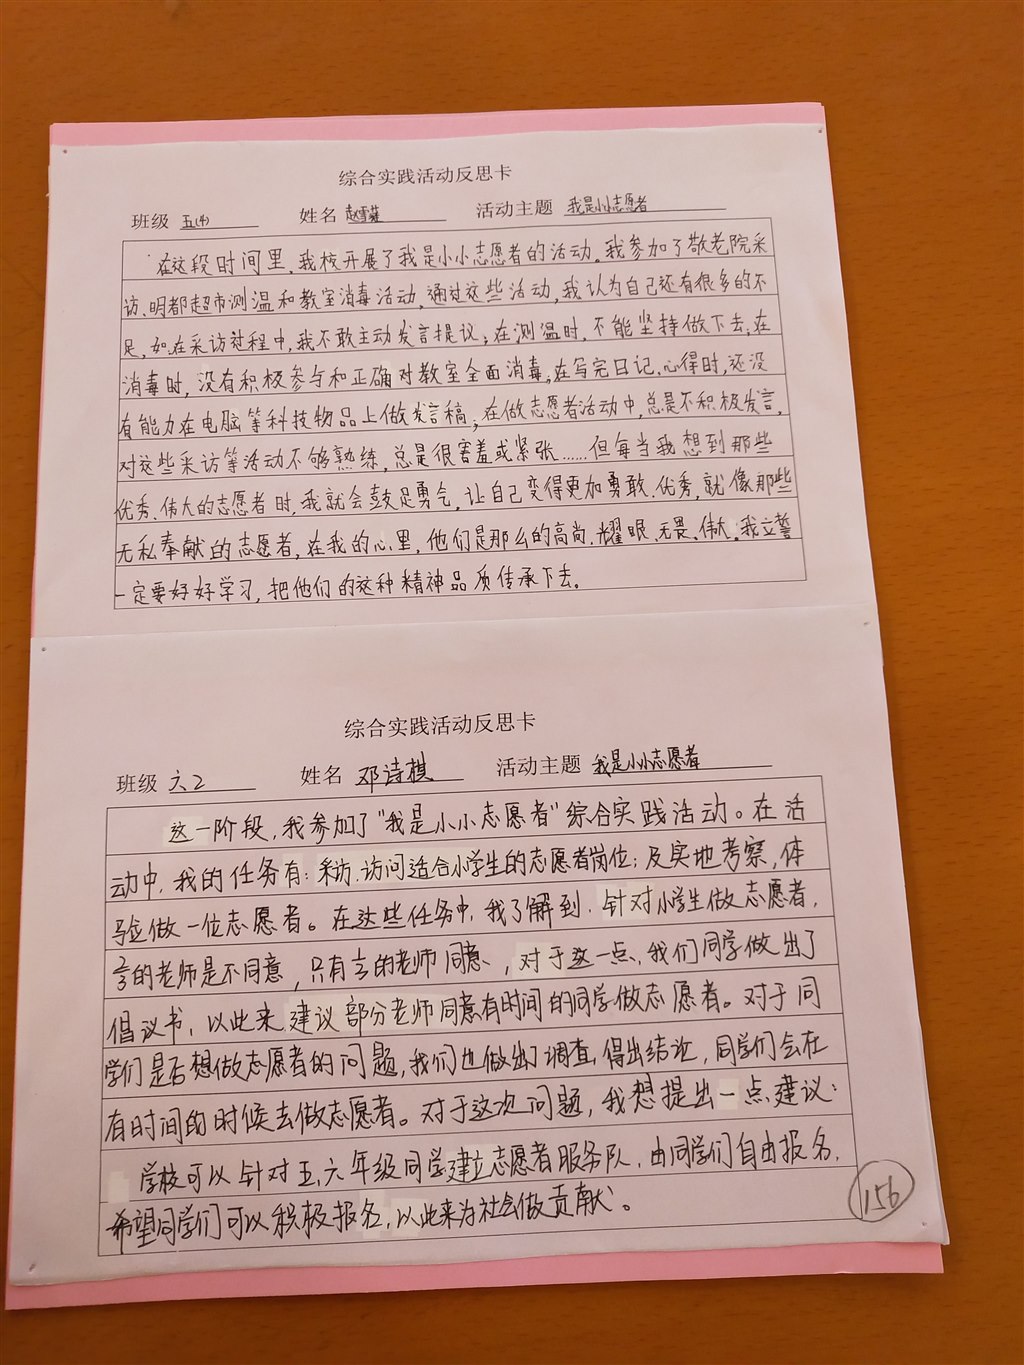 综合实践活动反思卡
班级 五(4) 姓名 赵雪蕴 活动主题 我是小小志愿者
在这段时间里,我校开展了我是小小志愿者的活动。我参加了敬老院采
访、明都超市测温和教室消毒活动,通过这些活动,我认为自己还有很多的不
足,如:在采访过程中,我不敢主动发言提议;在测温时,不能坚持做下去;在
消毒时,没有积极参与和正确对教室全面消毒;在写完日记、心得时,还没
有能力在电脑等科技物品上做发言稿;在做志愿者活动中,总是不积极发言,
对这些采访等活动不够熟练,总是很害羞或紧张……但每当我想到那些
优秀、伟大的志愿者时,我就会鼓足勇气,让自己变得更加勇敢、优秀,就像那些
无私奉献的志愿者,在我的心里,他们是那么的高尚、耀眼、无畏、伟大。我立誓
一定要好好学习,把他们的这种精神品质传承下去。
综合实践活动反思卡
班级 六2 姓名 邓诗棋 活动主题 我是小小志愿者
这一阶段,我参加了"我是小小志愿者"综合实践活动。在活
动中,我的任务有:采访、访问适合小学生的志愿者岗位;及实地考察,体
验做一位志愿者。在这些任务中,我了解到,针对小学生做志愿者,
的老师是不同意,只有 的老师同意,对于这一点,我们同学做出了
倡议书,以此来建议部分老师同意有时间的同学做志愿者。对于同
学们是否想做志愿者的问题,我们也做出了调查,得出结论,同学们会在
有时间的时候去做志愿者。对于这次问题,我想提出一点建议:
学校可以针对五、六年级同学建立志愿者服务队,由同学们自由报名,
希望同学们可以积极报名,以此来为社会做贡献。
156